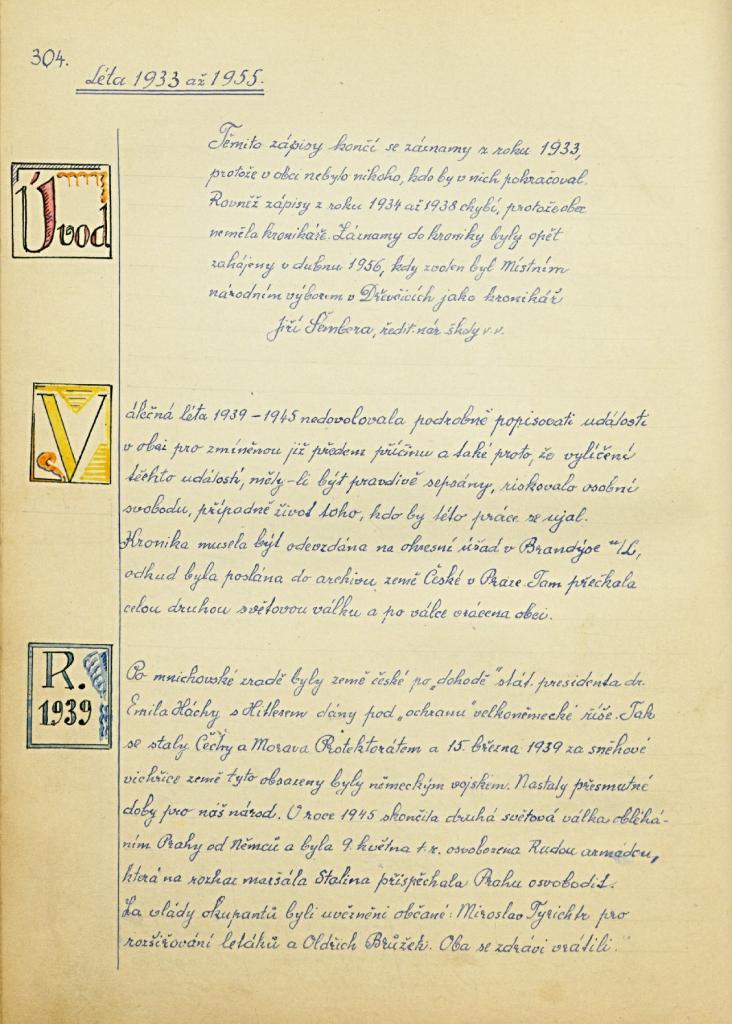 304.
Léta 1933 až 1955.
Úvod
Těmito zápisy končí se záznamy z roku 1933,
protože v obci nebylo nikoho, kdo by v nich pokračoval.
Rovněž zápisy z roku 1934 až 1938 chybí, protože obec
neměla kronikáře. Záznamy do kroniky byly opět
zahájeny v dubnu 1956, kdy zvolen byl Místním
národním výborem v Dřevčicích jako kronikář
Jiří Šembera, ředit. nár. školy v.v.
Válečná léta 1939 - 1945 nedovolovala podrobně popisovati události
v obci pro zmíněnou již předem příčinu a také proto, že vylíčení
těchto událostí, měly-li být pravdivě sepsány, riskovalo osobní
svobodu, případně život toho, kdo by této práce se ujal.
Kronika musela být odevzdána na okresní úřad v Brandýse n/L,
odkud byla poslána do archivu země České v Praze. Tam přečkala
celou druhou světovou válku a po válce vrácena obci.
R.
1939
Po mnichovské zradě byly země české po „dohodě" stát. presidenta dr.
Emila Háchy s Hitlerem dány pod „ochranu" velkoněmecké říše. Tak
se staly Čechy a Morava Protektorátem a 15. března 1939 za sněhové
vichřice země tyto obsazeny byly německým vojskem. Nastaly přesmutné
doby pro náš národ. V roce 1945 skončila druhá světová válka obléhá-
ním Prahy od Němců a byla 9. května t.r. osvobozena Rudou armádou,
která na rozkaz maršála Stalina přispěchala Prahu osvobodit.
Za vlády okupantů byli uvězněni občané: Miroslav Tyrichtr pro
rozšiřování letáků a Oldřich Brůžek. Oba se zdrávi vrátili.